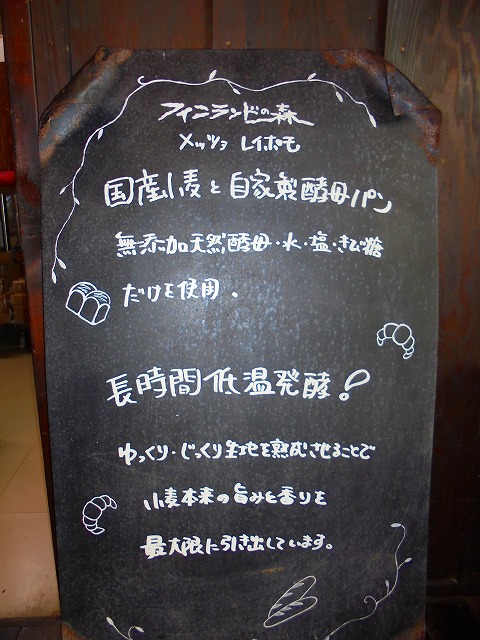 フィンランドの森
メッツァ レイポモ
国産小麦と自家製酵母パン
無添加天然酵母・水・塩・きび糖
だけを使用.
長時間低温発酵!
ゆっくり・じっくり生地を熟成させることで
小麦本来の旨みと香りを
最大限に引き出しています。